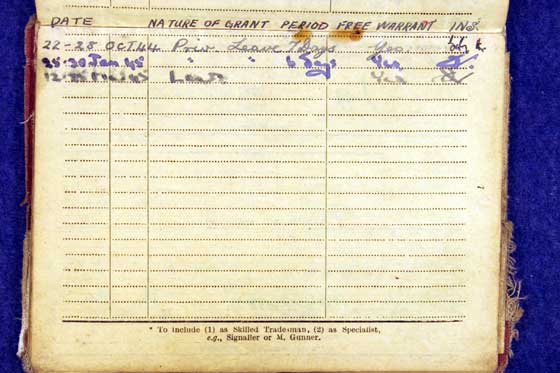 DATE NATURE OF GRANT PERIOD FREE WARRANT INS
22-28 OCT 44 Priv Leave 7 Days Yes
25-30 Jan 45 " " 6 Days Yes
Leave Yes
* To include (1) as Skilled Tradesman, (2) as Specialist,
e.g., Signaller or M. Gunner.